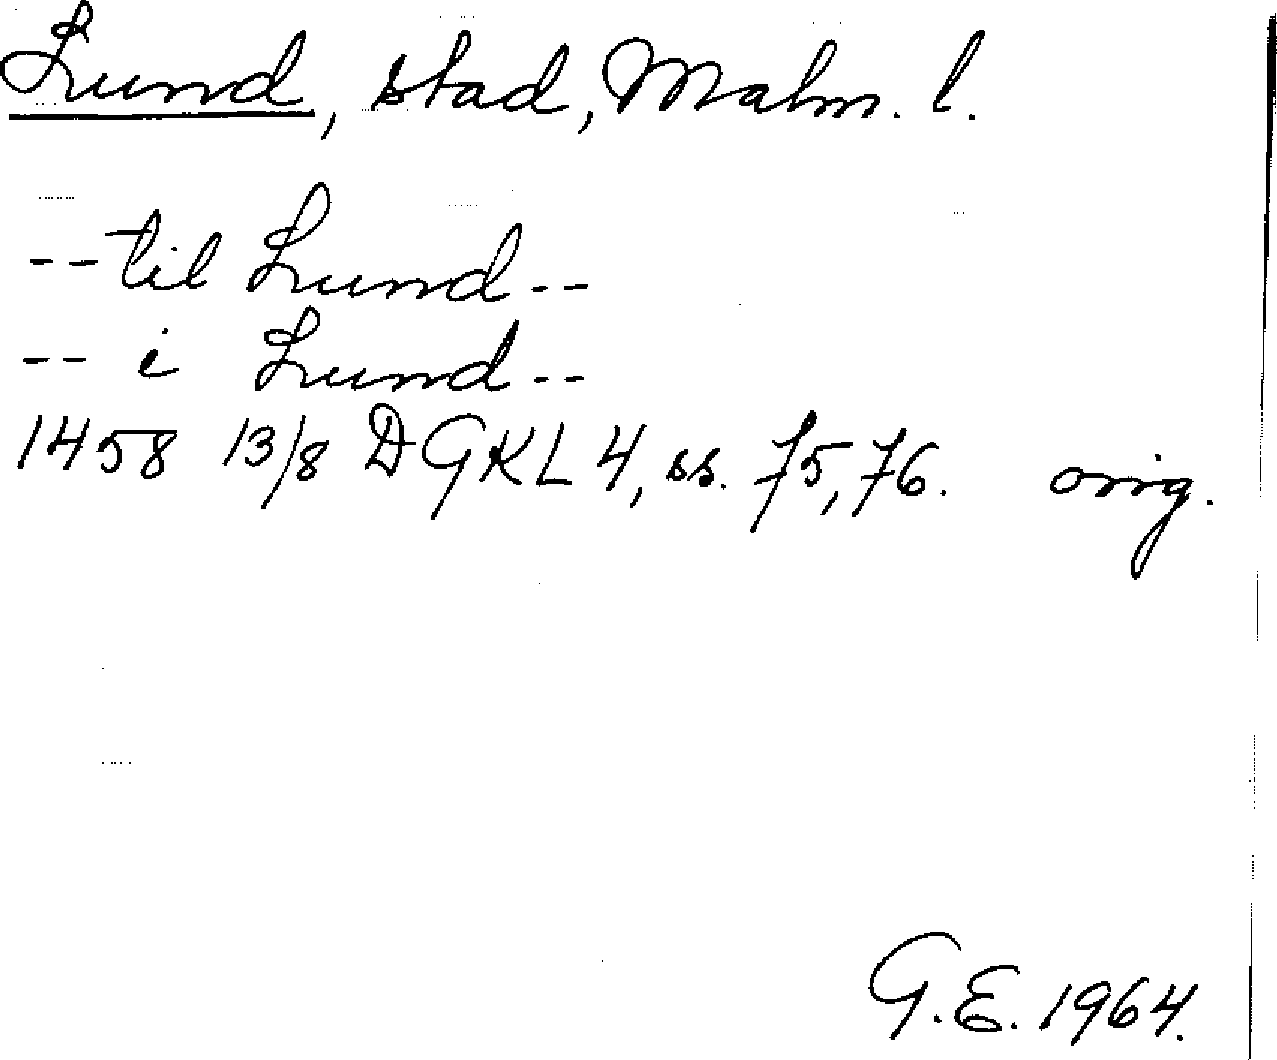 Lund, stad, Malm. l.
-- til Lund --
-- i Lund --
1458 13/8 DGKL 4, ss. 75, 76. orig.
G.E. 1964.